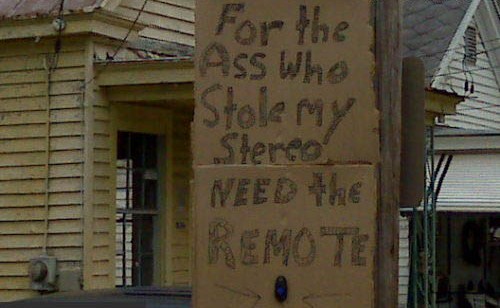 For the
Ass Who
Stole my
Stereo
NEED the
REMOTE